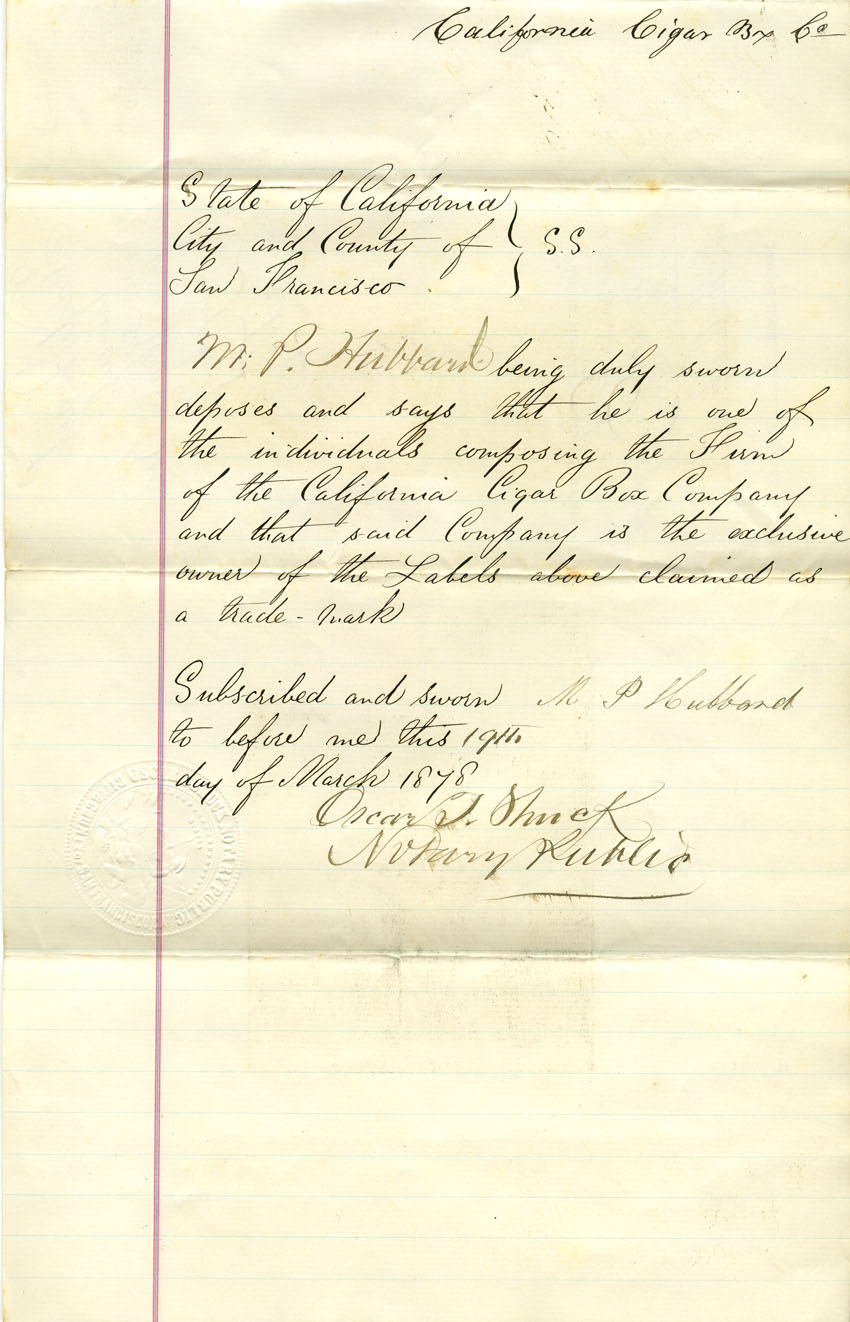 California Cigar Bx Co
State of California
City and County of } S.S.
San Francisco
M. P. Hubbard being duly sworn
deposes and says that he is one of
the individuals composing the Firm
of the California Cigar Box Company
and that said Company is the exclusive
owner of the Labels above claimed as
a trade-mark
Subscribed and sworn M P Hubbard
to before me this 19th
day of March 1878
Oscar T. Shuck
Notary Public